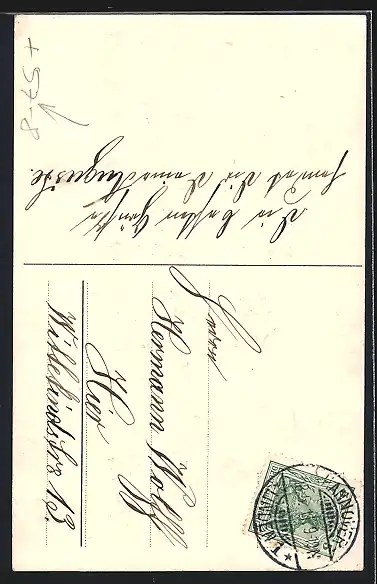 Die besten Grüße
sendet Dir Deine Auguste.
Herrn
Hermann Wolff
Hier
Wittekindstr. 13.
+ 57-8